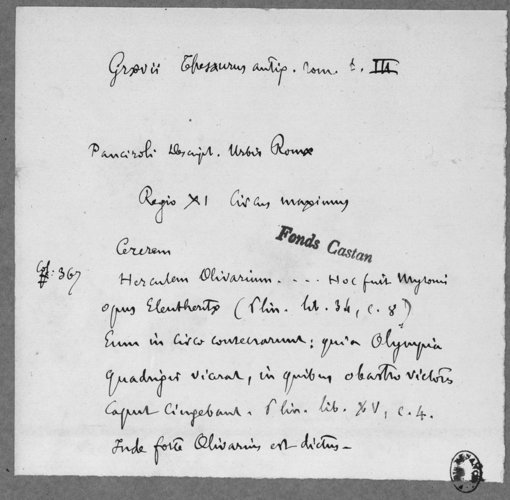 Grævii Thesaurus antiq. rom. t. III
Panciroli Descript. Urbis Romæ
Regio XI Circus maximus
Fonds Castan
Cererem
Col. 367
Herculem Olivarium. . . . Hoc fuit Myronis
opus Eleutheritæ (Plin. lib. 34, c. 8)
Eum in Circo consecrarunt; quia Olympia
quadrigis vicerat, in quibus oleastro victoris
Caput Cingebant. Plin. lib. XV, c. 4.
Inde forte Olivarius est dictus_